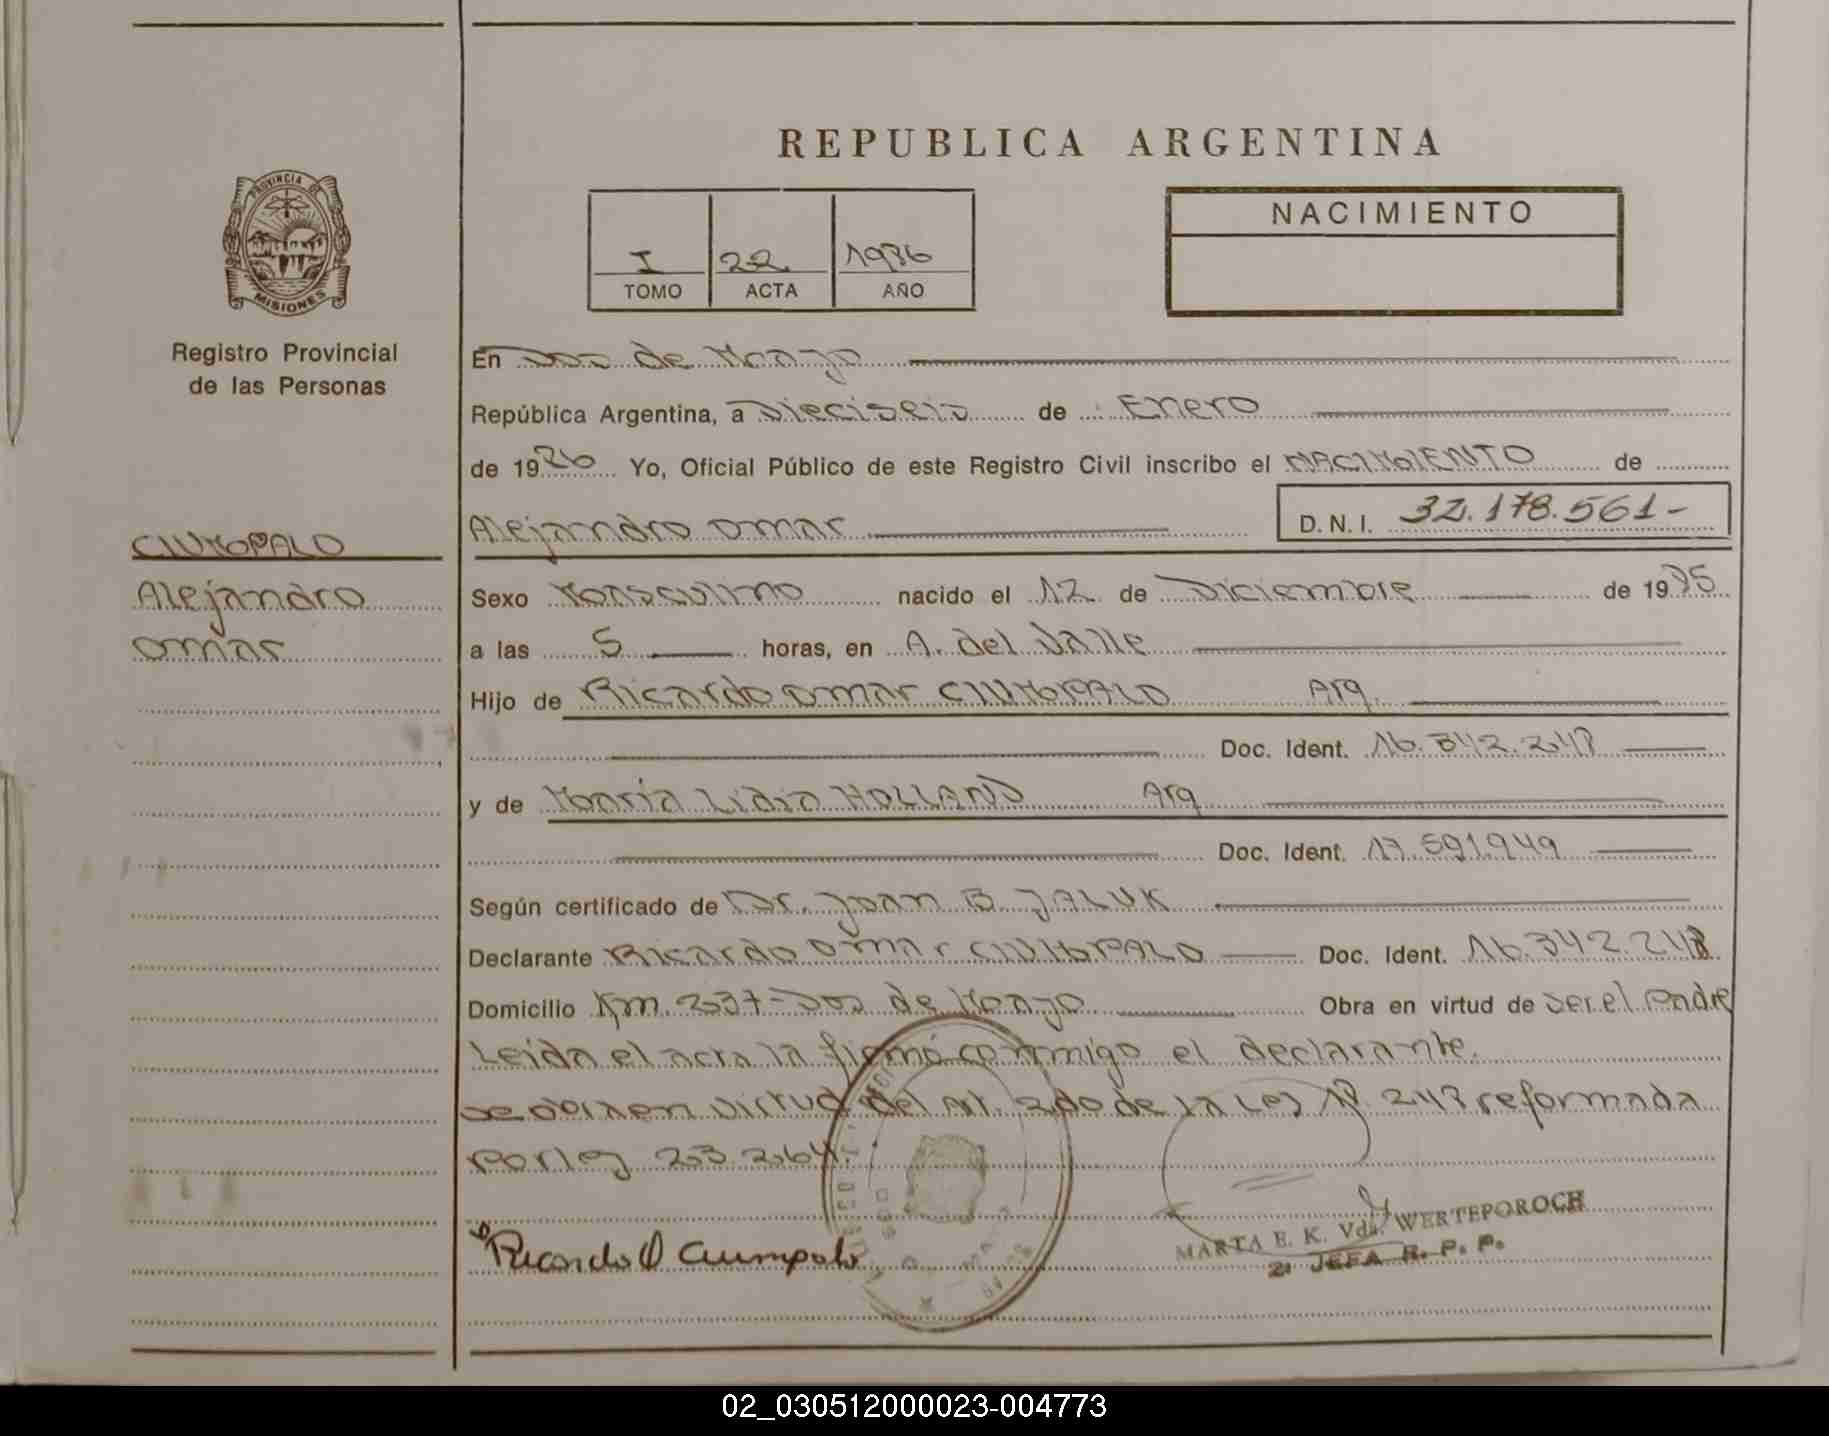 REPUBLICA ARGENTINA
PROVINCIA DE
MISIONES
Registro Provincial
de las Personas
I 22 1986
TOMO ACTA AÑO
NACIMIENTO
En Dos de Mayo
República Argentina, a Dieciseis de Enero
de 1986 Yo, Oficial Público de este Registro Civil inscribo el NACIMIENTO de
Alejandro Omar D.N.I. 32.178.561-
CIUMPALO
Alejandro
Omar
Sexo Masculino nacido el 12 de Diciembre de 1985
a las 5 horas, en A. del Valle
Hijo de Ricardo Omar CIUMPALO Arg.
Doc. Ident. 16.342.248
y de Maria Lidia HOLLAND Arg
Doc. Ident. 17.591.949
Según certificado de Dr. Joan B JALUK
Declarante Ricardo Omar CIUMPALO Doc. Ident. 16.342.248
Domicilio Km. 237-Dos de Mayo Obra en virtud de ser el Padre
Leida el acta la firmó conmigo el declarante.
en virtud del Art. 2do de la Ley 18.248 reformada
por ley 23.264.
Ricardo O Ciumpalo
MARTA E. K. Vda. WERTEPOROCH
JEFA R. P. P.
02_030512000023-004773